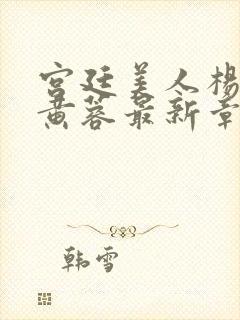 宫廷美人杨
黄蓉最新章
韩雪